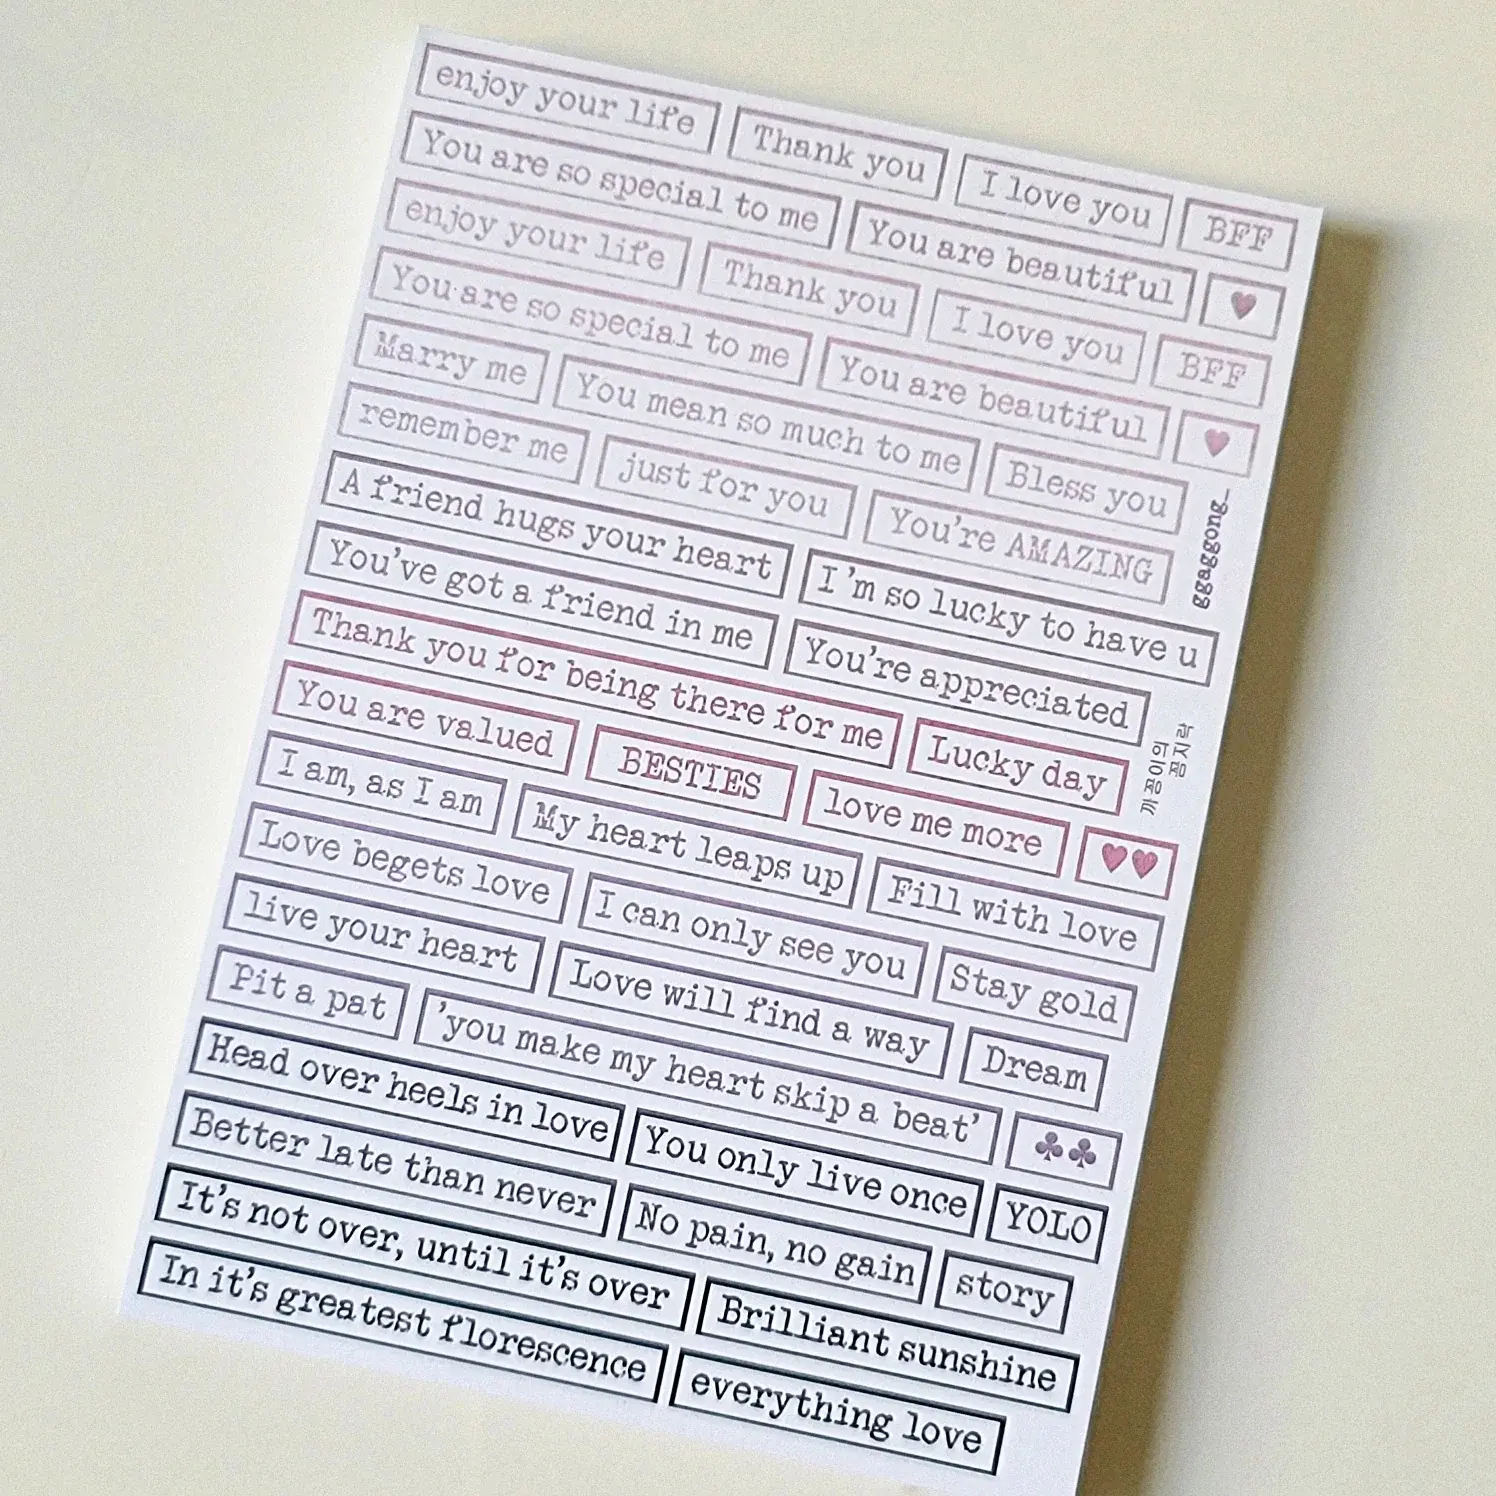 enjoy your life Thank you I love you BFF
You are so special to me You are beautiful ♥
enjoy your life Thank you I love you BFF
You are so special to me You are beautiful ♥
Marry me You mean so much to me Bless you
remember me just for you You're AMAZING
ggaggong_
A friend hugs your heart I'm so lucky to have u
You've got a friend in me You're appreciated
Thank you for being there for me Lucky day
You are valued BESTIES love me more ♥♥
I am, as I am My heart leaps up Fill with love
Love begets love I can only see you Stay gold
live your heart Love will find a way Dream
Pit a pat 'you make my heart skip a beat' ♣♣
Head over heels in love You only live once YOLO
Better late than never No pain, no gain story
It's not over, until it's over Brilliant sunshine
In it's greatest florescence everything love